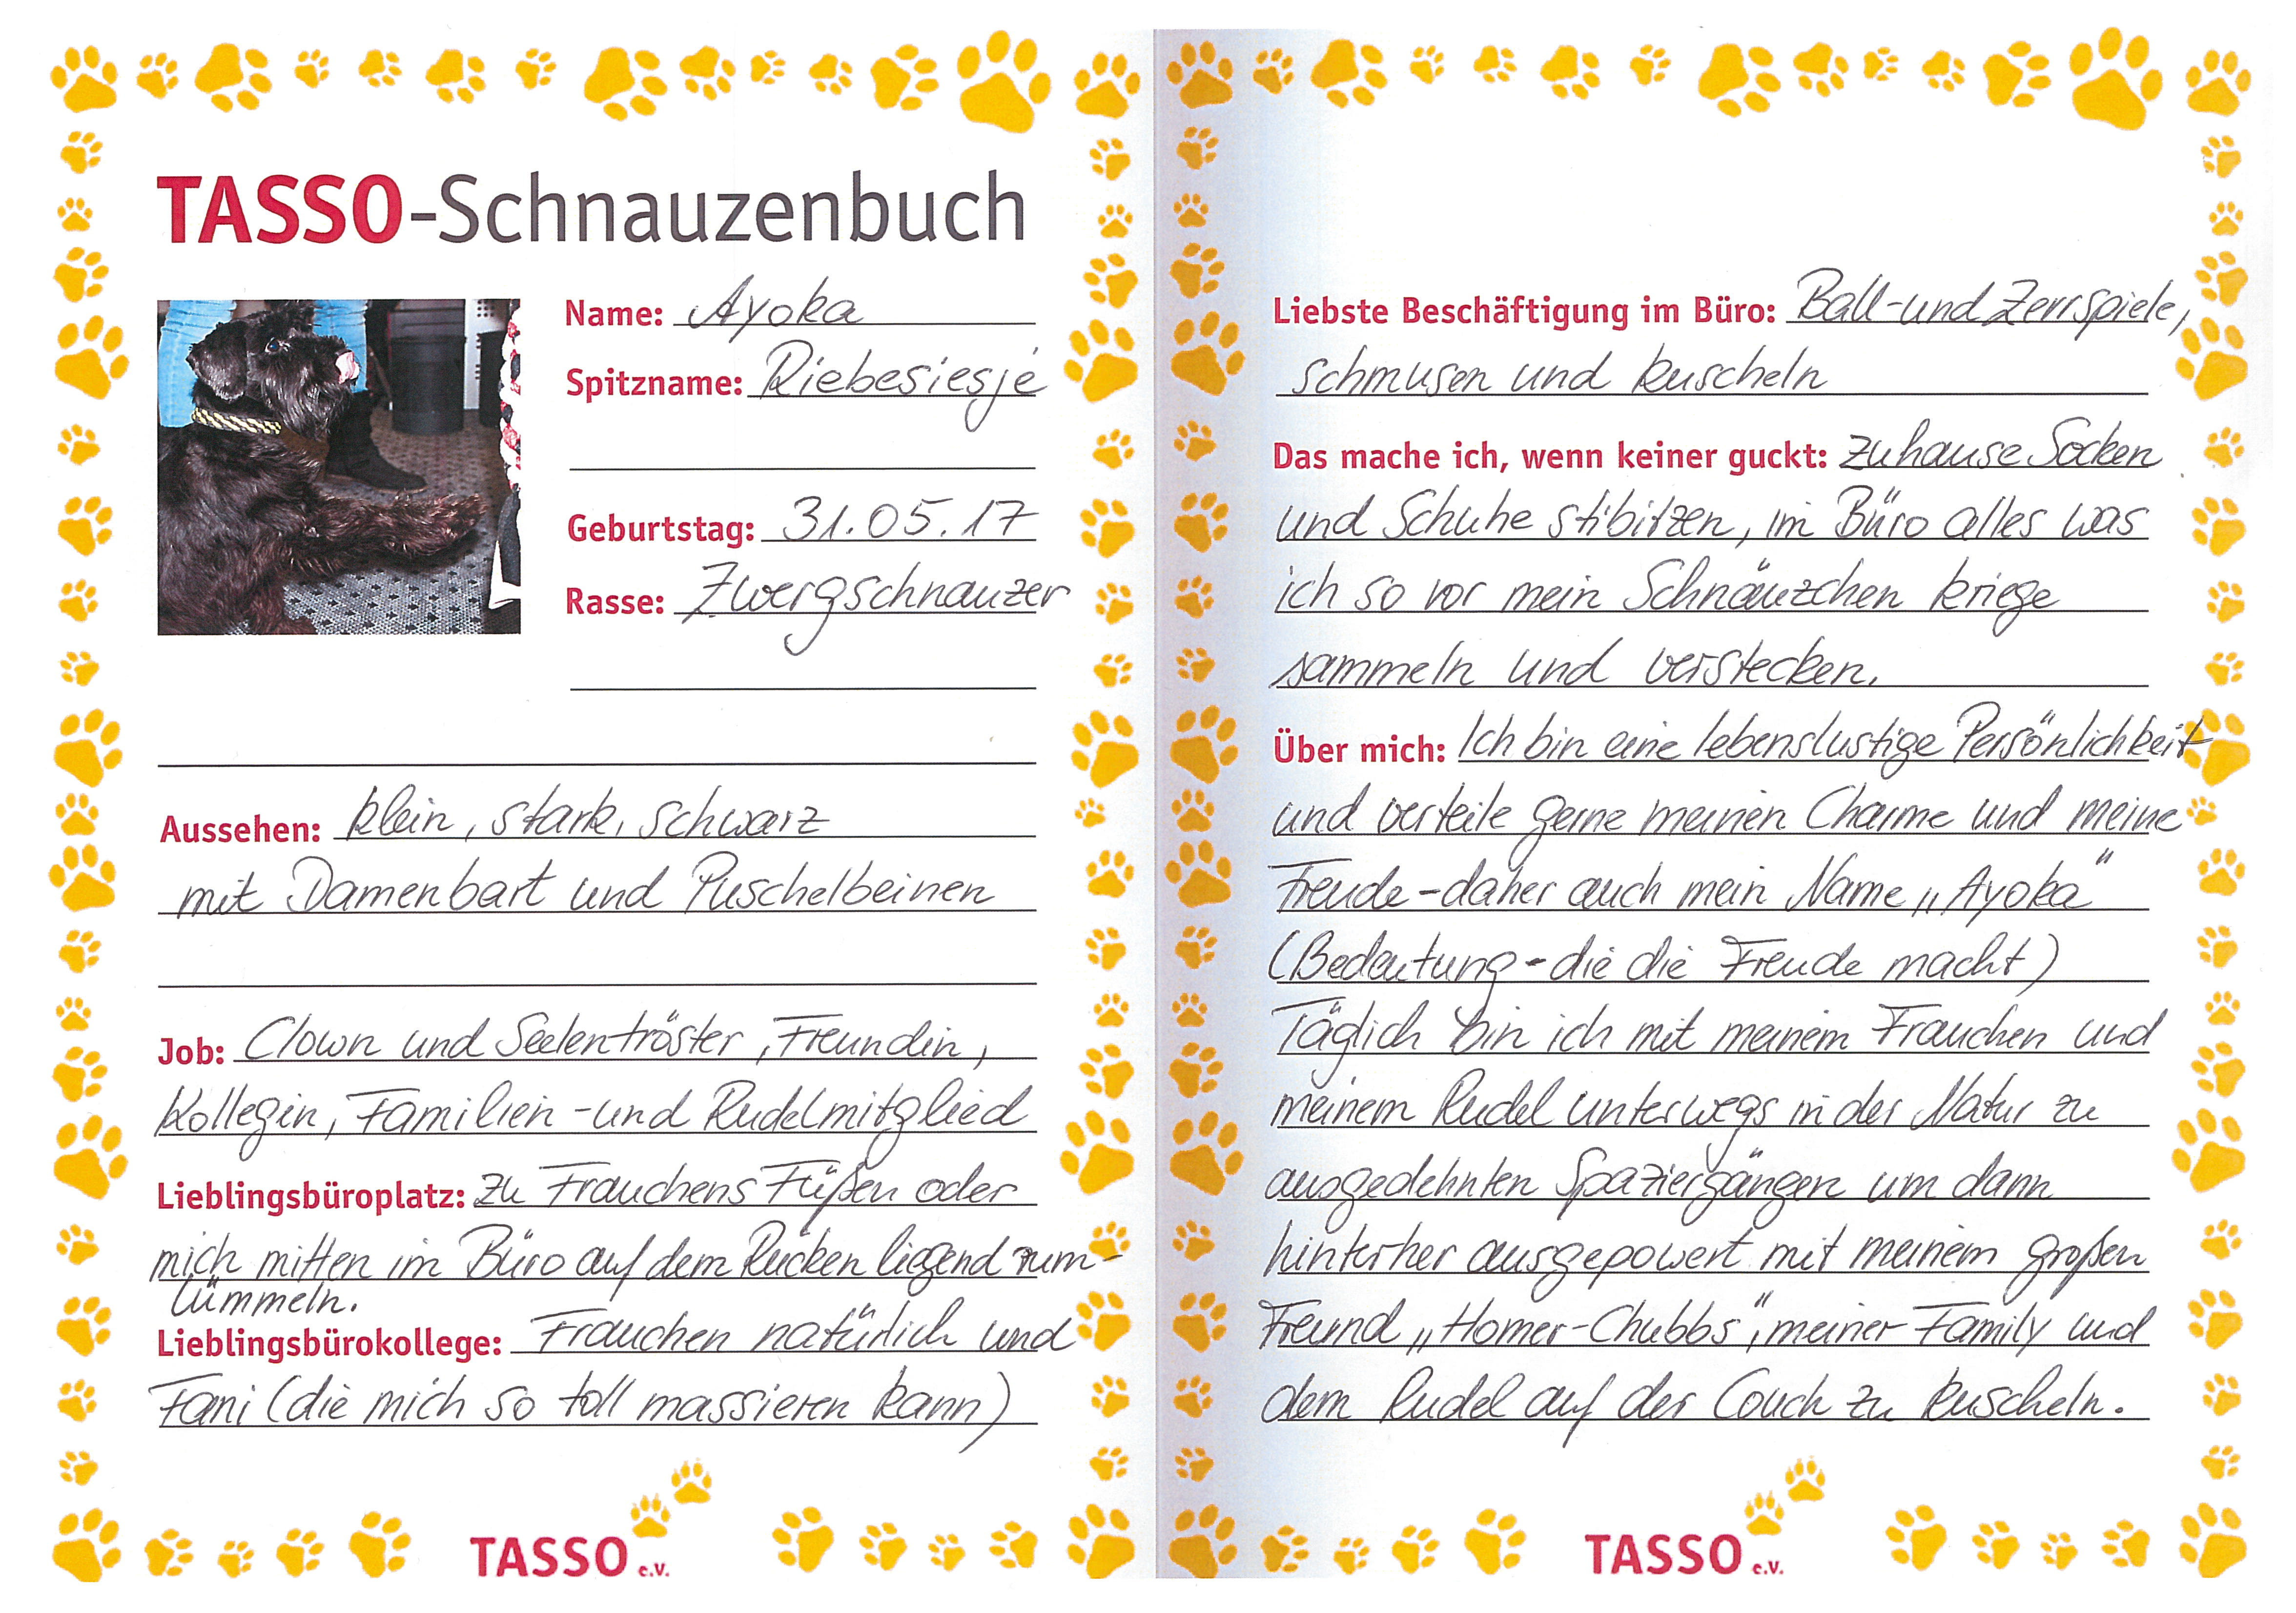 TASSO-Schnauzenbuch
Name: Ayoka
Spitzname: Riebesiesje
Geburtstag: 31.05.17
Rasse: Zwergschnauzer
Aussehen: klein, stark, schwarz
mit Damenbart und Puschelbeinen
Job: Clown und Seelentröster, Freundin,
Kollegin, Familien-und Rudelmitglied
Lieblingsbüroplatz: zu Frauchens Füßen oder
mich mitten im Büro auf dem Rücken liegend rum-
lümmeln.
Lieblingsbürokollege: Frauchen natürlich und
Fani (die mich so toll massieren kann)
TASSO e.V.
Liebste Beschäftigung im Büro: Ball-und Zerrspiele,
schmusen und kuscheln
Das mache ich, wenn keiner guckt: zuhause Socken
und Schuhe stibitzen, im Büro alles was
ich so vor mein Schnäuzchen kriege
sammeln und verstecken.
Über mich: Ich bin eine lebenslustige Persönlichkeit
und verteile gerne meinen Charme und meine
Freude-daher auch mein Name „Ayoka"
(Bedeutung-die die Freude macht)
Täglich bin ich mit meinem Frauchen und
meinem Rudel unterwegs in der Natur zu
ausgedehnten Spaziergängen um dann
hinterher ausgepowert mit meinem großen
Freund „Homer-Chubbs", meiner Family und
dem Rudel auf der Couch zu kuscheln.
TASSO e.V.